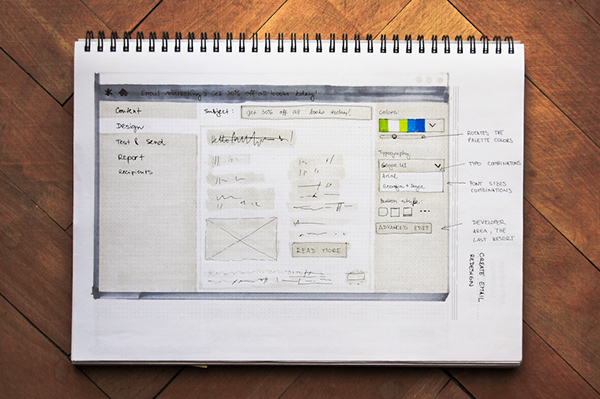 Email marketing: Get 50% off all books today!
Content
Design
Test & Send
Report
Recipients
Subject:
Get 50% off all books today!
READ MORE
Colors:
Typography
Segoe UI
Arial
Button style
ADVANCED EDIT
ROTATES THE
PALETTE COLORS
TYPO COMBINATIONS
FONT SIZES
COMBINATIONS
DEVELOPER
AREA, THE
LAST RESORT
CREATE EMAIL
REDESIGN